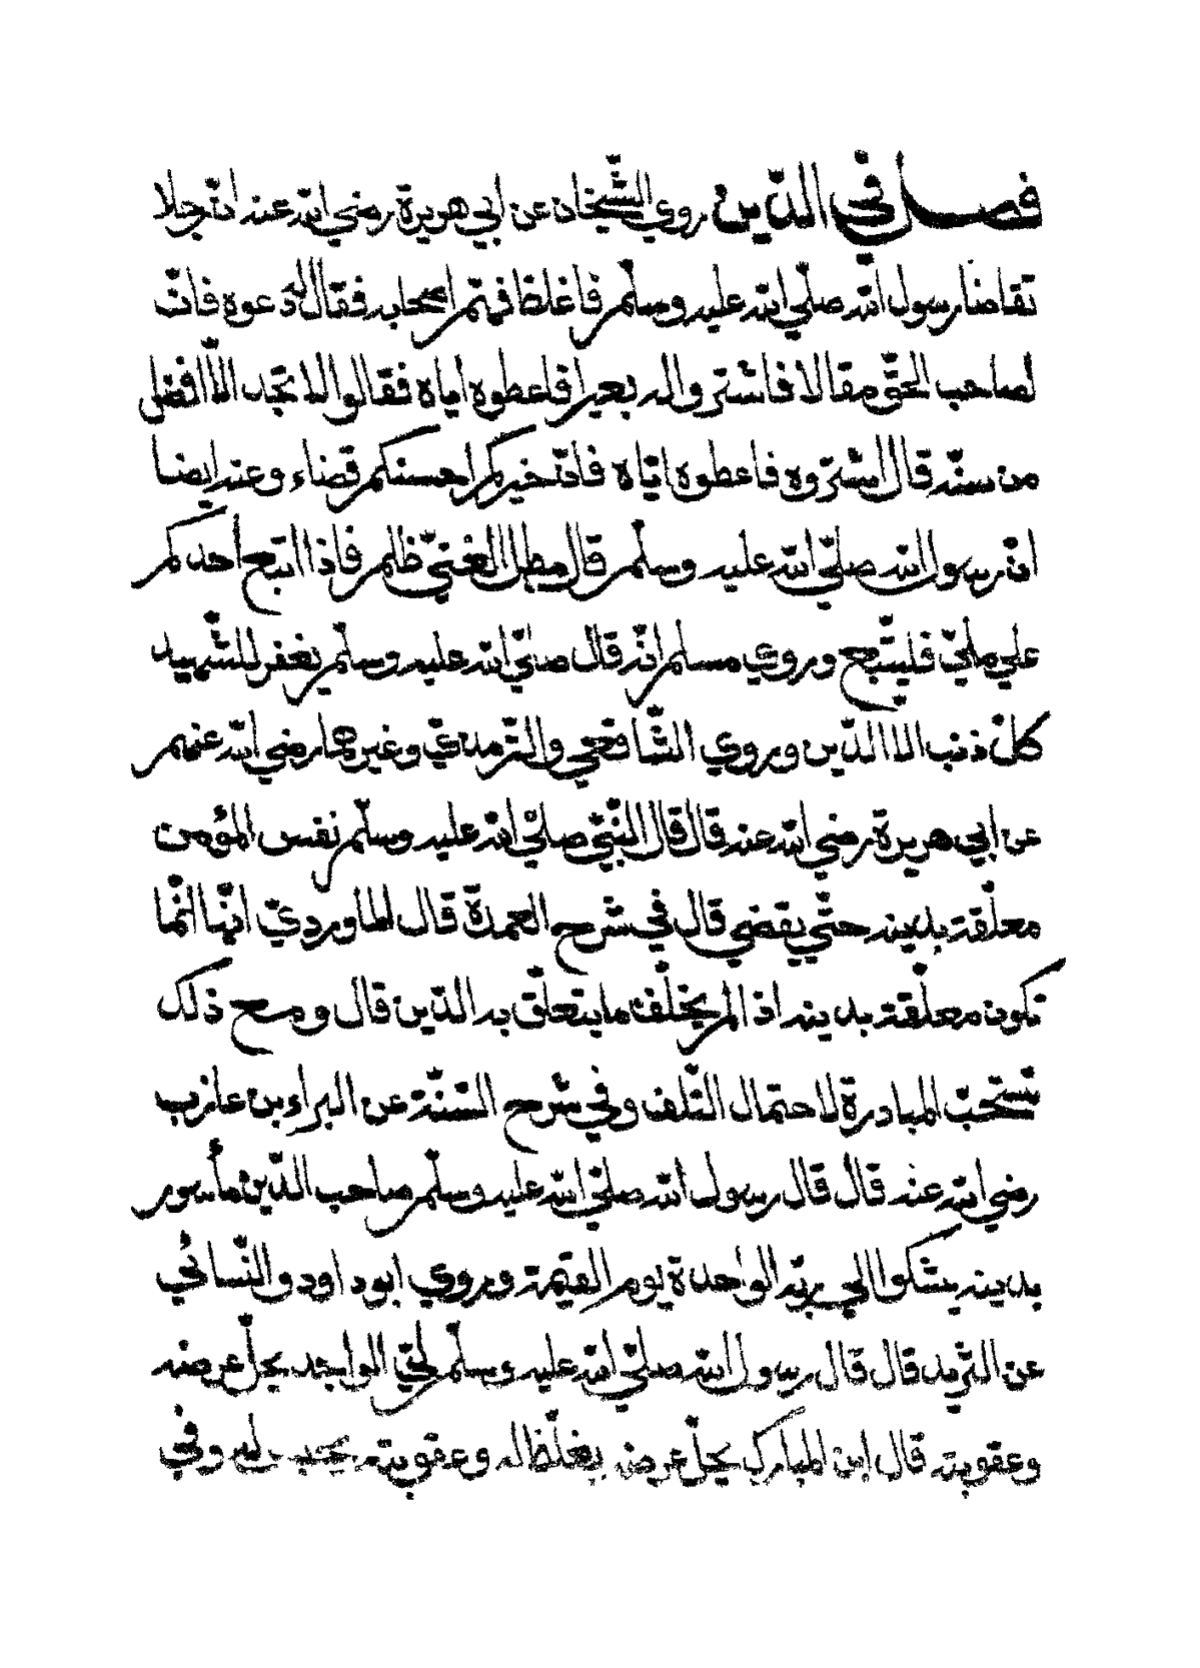 فصل في الدّين روي الشّيخان عن ابي هريرة رضي الله عنه انّ رجلا
تقاضا رسول الله صلّي الله عليه وسلّم فاغلظ فهمّ اصحابه فقال لهم دعوه فانّ
لصاحب الحقّ مقالا فاشتروا له بعيرا فاعطوه اياه فقالوا لا نجد الّا افضل
من سنّه قال اشتروه فاعطوه ايّاه فانّ خيركم احسنكم قضاء وعنه ايضا
انّ رسول الله صلّي الله عليه وسلّم قال مطل الغنيّ ظلم فاذا اتبع أحدكم
علي مليّ فليتّبع وروي مسلم انّه قال صلّي الله عليه وسلّم يغفر للشّهيد
كلّ ذنب الا الدّين وروي الشّافعي والتّرمذيّ وغيرهما رضي الله عنهم
عن ابي هريرة رضي الله عنه قال قال النّبيّ صلّي الله عليه وسلّم نفس المؤمن
معلّقة بدينه حتّي يقضي قال في شرح العمدة قال الماورديّ انّها انّما
تكون معلّقة بدينه اذا لم يخلّف ما يتعلّق به الدّين قال ومع ذلك
تستحبّ المبادرة لاحتمال التّلف وفي شرح السّنّة عن البراء بن عازب
رضي الله عنه قال قال رسول الله صلّي الله عليه وسلّم صاحب الدّين مأسور
بدينه يشكوا الي ربّه الوحدة يوم القيمة وروي ابو داود والنّسائي
عن الشّريد قال قال رسول الله صلّي الله عليه وسلّم ليّ الواجد يحلّ عرضه
وعقوبته قال ابن المبارك يحلّ عرضه يغلّظ له وعقوبته يحبس له وفي